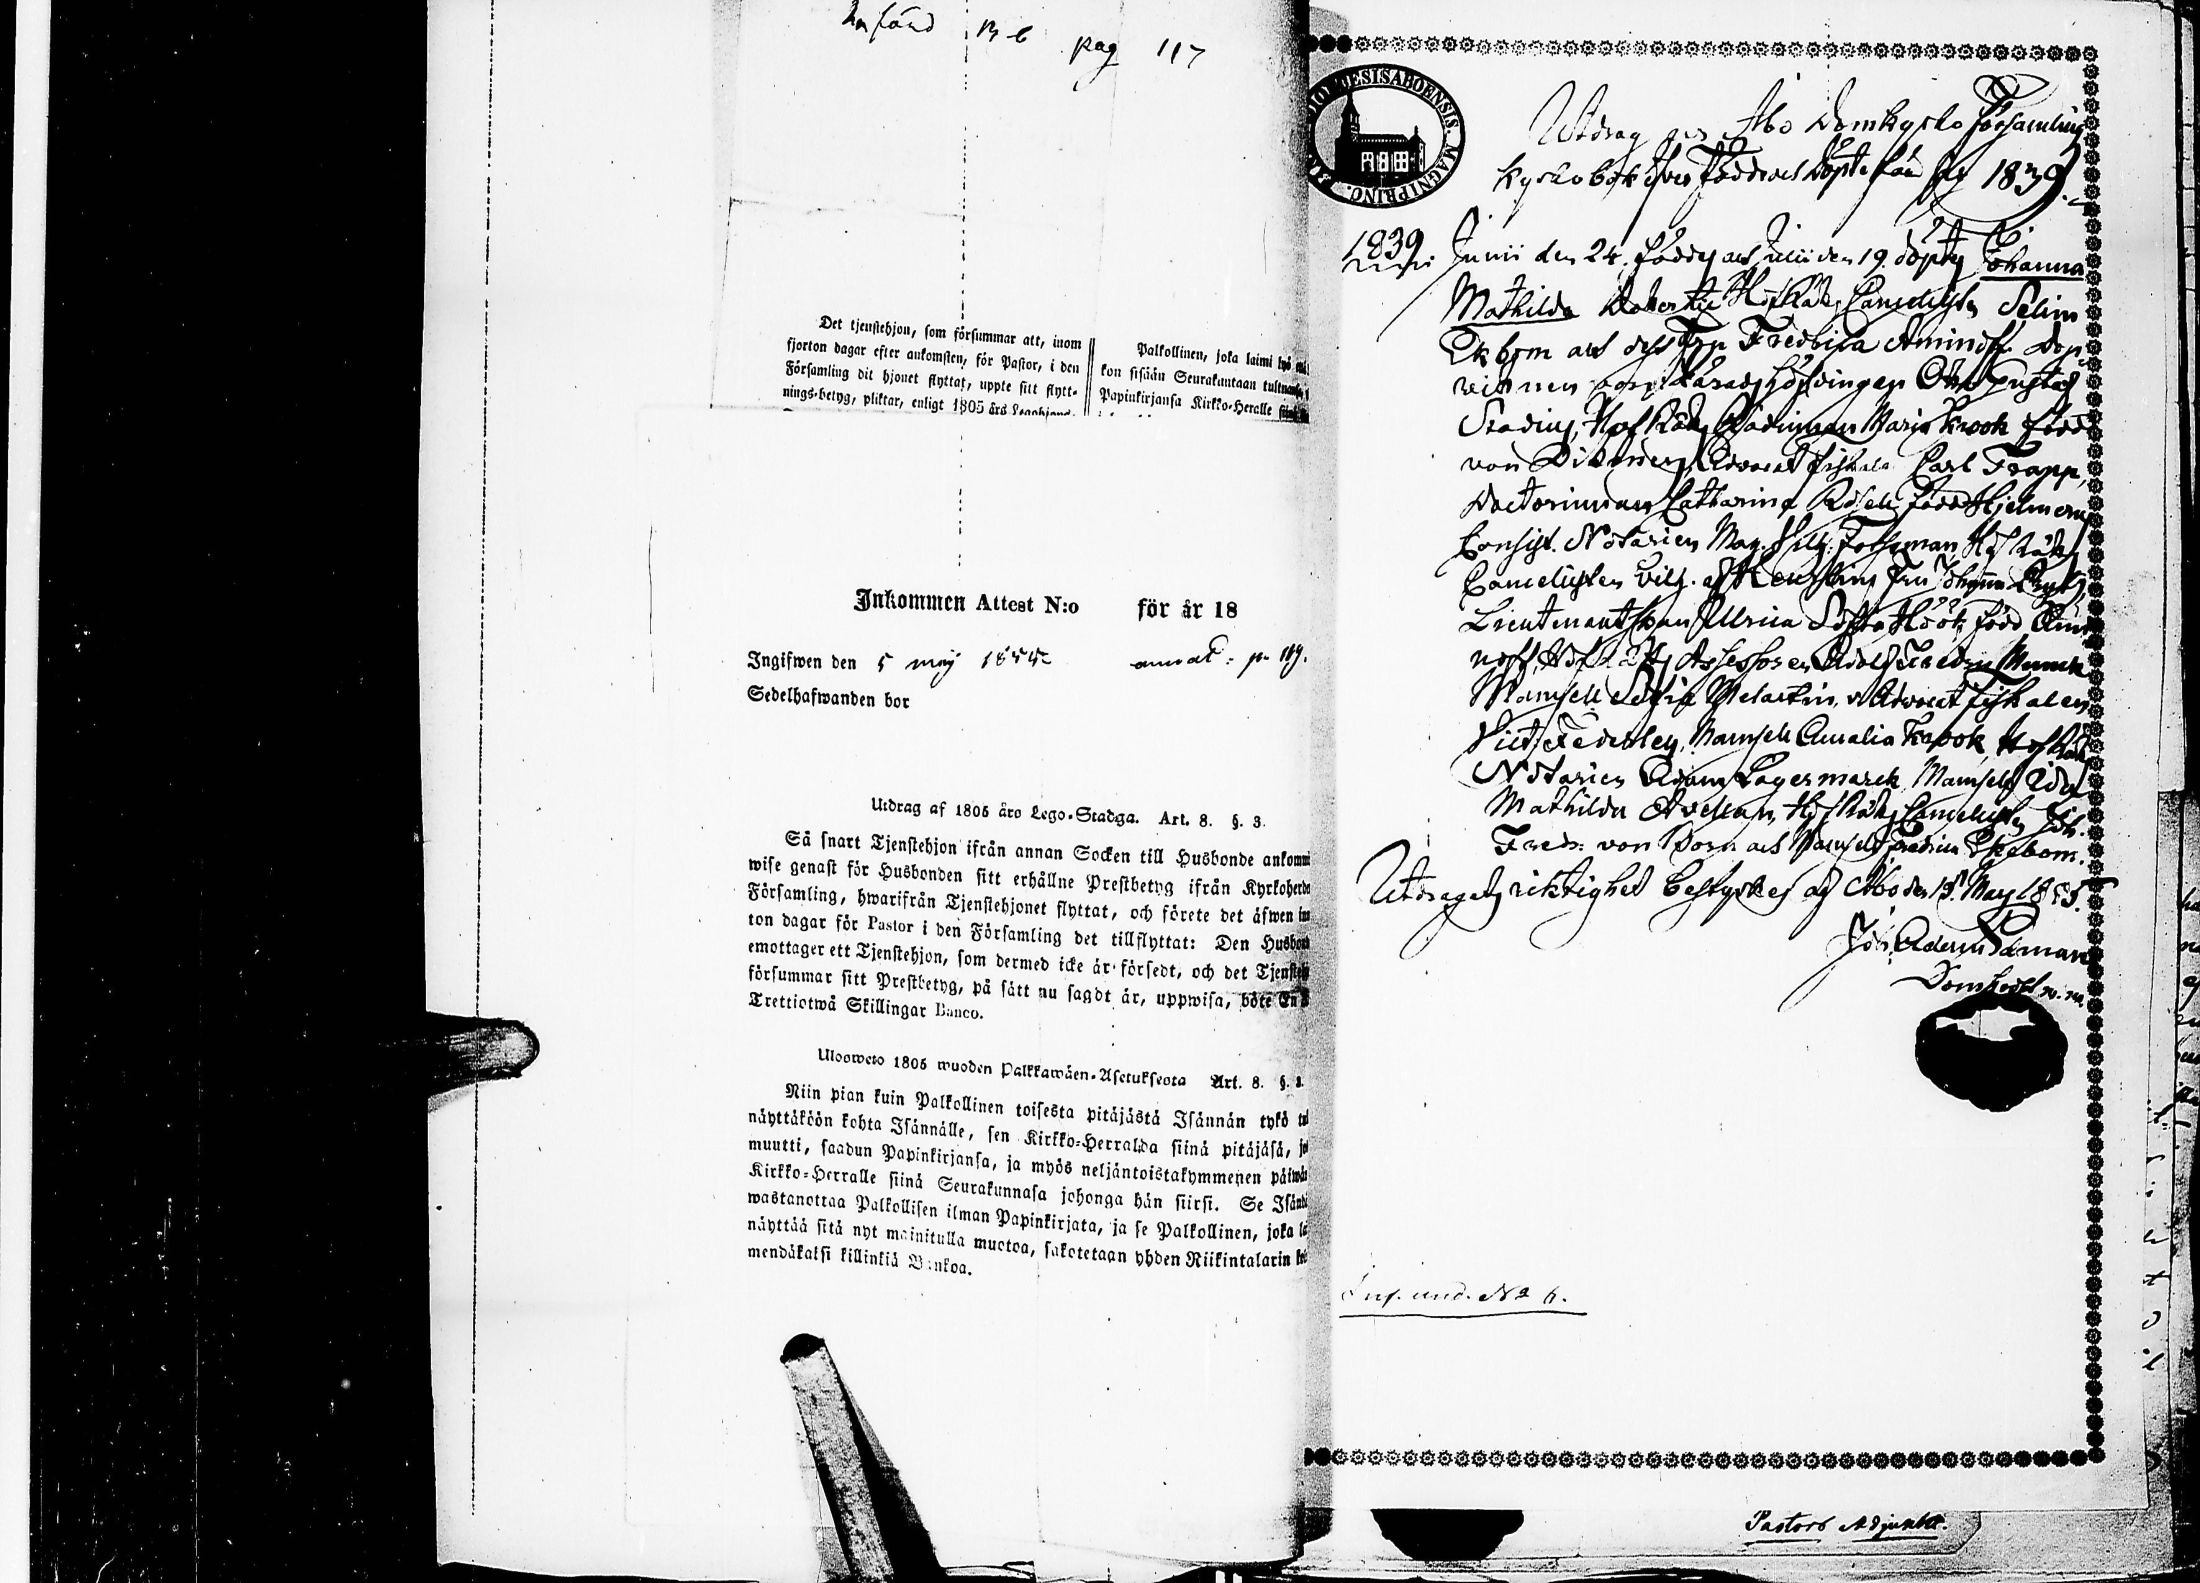 B6 pag 117
Det tjenstehjon, som försummar att, inom
fjorton dagar efter ankomsten, för Pastor, i den
Församling dit hjonet flyttat, uppte sitt flytt-
nings-betyg, pliktar, enligt 1805 års Legohjons-
Palkollinen, joka laimi lyö
kon sisään Seurakuntaan tultuansa,
Papinkirjansa Kirkko-Heralle
Inkommen Attest N:o för år 18
Ingifwen den 5 maj 1855 annot: p. 119.
Sedelhafwanden bor
Utdrag af 1805 års Lego-Stadga. Art. 8. §. 3.
Så snart Tjenstehjon ifrån annan Socken till Husbonde ankomm
wise genast för Husbonden sitt erhållne Prestbetyg ifrån Kyrkoherde
Församling, hwarifrån Tjenstehjonet flyttat, och förete det äfwen in
ton dagar för Pastor i den Församling det tillflyttat: Den Husbond
emottager ett Tjenstehjon, som dermed icke är försedt, och det Tjensteh
försummar sitt Prestbetyg, på sätt nu sagdt är, uppwisa, böte En
Trettiotwå Skillingar Banco.
Ulosweto 1805 wuoden Palkkawäen-Asetuksesta Art. 8. §.
Niin pian kuin Palkollinen toisesta pitäjästä Isännän tykö tu
näyttäköön kohta Isännälle, sen Kirkko-Herralda siinä pitäjäsä, jo
muutti, saadun Papinkirjansa, ja myös neljäntoistakymmenen päiwän
Kirkko-Herralle siinä Seurakunnasa johonga hän siirsi. Se Isänd
wastanottaa Palkollisen ilman Papinkirjata, ja se Palkollinen, joka la
näyttää sitä nyt mainitulla muotoa, sakotetaan yhden Riikintalarin
mendäkaksi killinkiä Bankoa.
DIOECESISABOENSIS. MAGNIPRINC.
Utdrag ur Åbo Domkyrko Församlings
kyrkobok öfver Födde och Döpte från år 1839.
1839 Junii den 24. föddes och Julii den 19. döptes Johanna
Mathilda Dotter till HofRätts Cancellisten Selim
Ekbom och dess Fru Fredrica Aminoff. Dop-
vittnen voro Häradshöfdingen Otto Gustaf
Stadius, HofRätts Rådinnan Maria Krook född
von Dittmer, Advocat fiskalen Carl Trapp,
Doctorinnan Catharina född Hjelmerus
Consist. Notarien Mag. Wilh. Forsman, Hof Rätts
Cancellisten Wilh. af Heurlin, Fru Johanna
Lieutenantskan Ulrica Sofia Höök född Ami-
noff, Hof Rätts Assessoren Adolf Fredric Munck
Mamsell Sofia Melartin, v. Advocat fiskalen
Vict. Federley, Mamsell Amalia Krook, Hof Rätts
Notarien Adam Lagermarck, Mamsell Ida
Mathilda Avellan, Hof Rätts Cancellisten Joh.
Fredr. von Born och Mamsell Fredrica Ekbom.
Utdragets riktighet bestyrkes af Åbo den 15 Maij 1855.
Domkyrko
N:o 6.
Pastors Adjunkt.